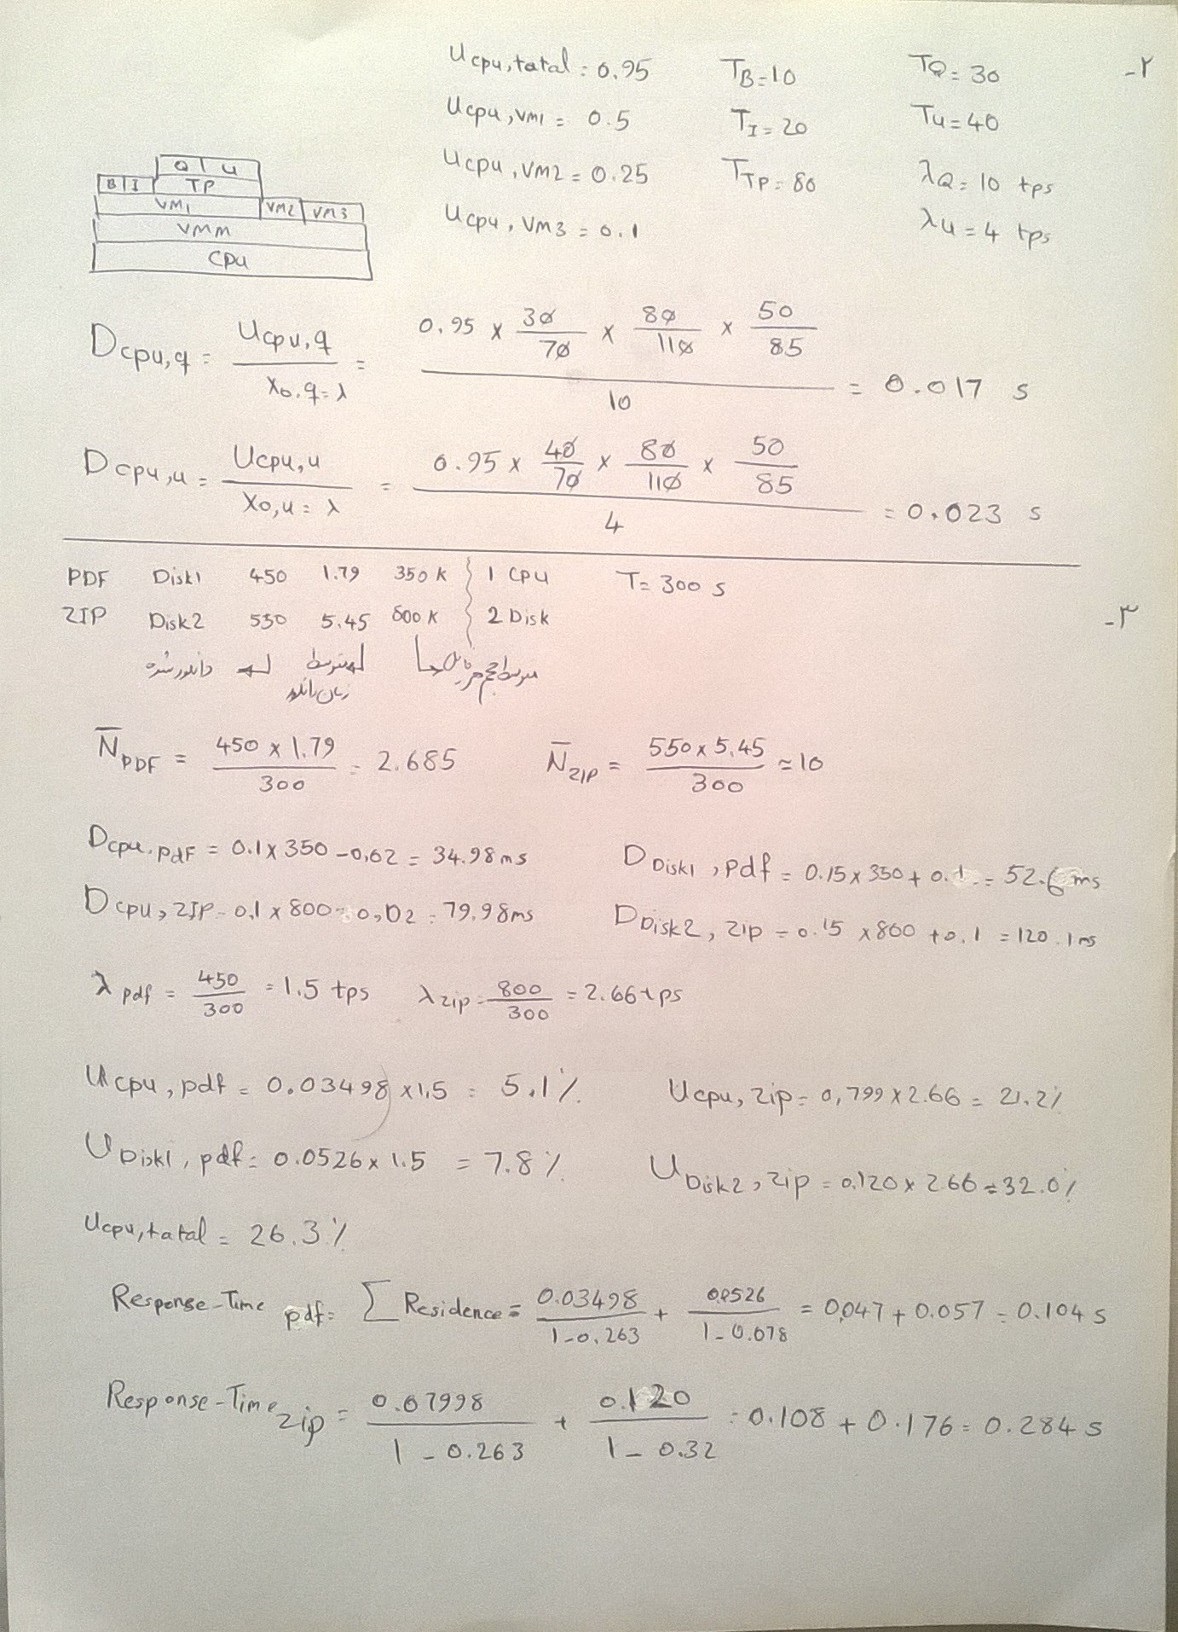 -۲
Ucpu,total = 0.95 TB = 10 TQ = 30
Ucpu,VM1 = 0.5 TI = 20 Tu = 40
Ucpu,VM2 = 0.25 TTP = 80 λQ = 10 tps
Ucpu,VM3 = 0.1 λu = 4 tps
Q U
B I TP
VM1 VM2 VM3
VMM
CPU
Dcpu,q = Ucpu,q / X0,q=λ = 0.95 × 30/70 × 80/110 × 50/85 / 10 = 0.017 s
Dcpu,u = Ucpu,u / X0,u=λ = 0.95 × 40/70 × 80/110 × 50/85 / 4 = 0.023 s
-۳
PDF Disk1 450 1.79 350K 1 CPU T = 300 s
ZIP Disk2 550 5.45 800K 2 Disk
دانلود شده متوسط متوسط حجم
زمان دانلود
N̄PDF = 450 × 1.79 / 300 = 2.685 N̄ZIP = 550 × 5.45 / 300 ≈ 10
Dcpu,pdf = 0.1 × 350 - 0,02 = 34.98 ms DDisk1,pdf = 0.15 × 350 + 0.1 = 52.6 ms
Dcpu,ZIP = 0.1 × 800 - 0,02 = 79.98 ms DDisk2,zip = 0.15 × 800 + 0.1 = 120.1 ms
λpdf = 450/300 = 1.5 tps λzip = 800/300 = 2.66 tps
Ucpu,pdf = 0.03498 × 1.5 = 5.1% Ucpu,zip = 0,799 × 2.66 = 21.2%
UDisk1,pdf = 0.0526 × 1.5 = 7.8% UDisk2,zip = 0.120 × 2.66 = 32.0%
Ucpu,total = 26.3%
Response-Time pdf = ∑ Residence = 0.03498 / 1-0.263 + 0.0526 / 1-0.078 = 0,047 + 0.057 = 0.104 s
Response-Time zip = 0.07998 / 1-0.263 + 0.120 / 1-0.32 = 0.108 + 0.176 = 0.284 s